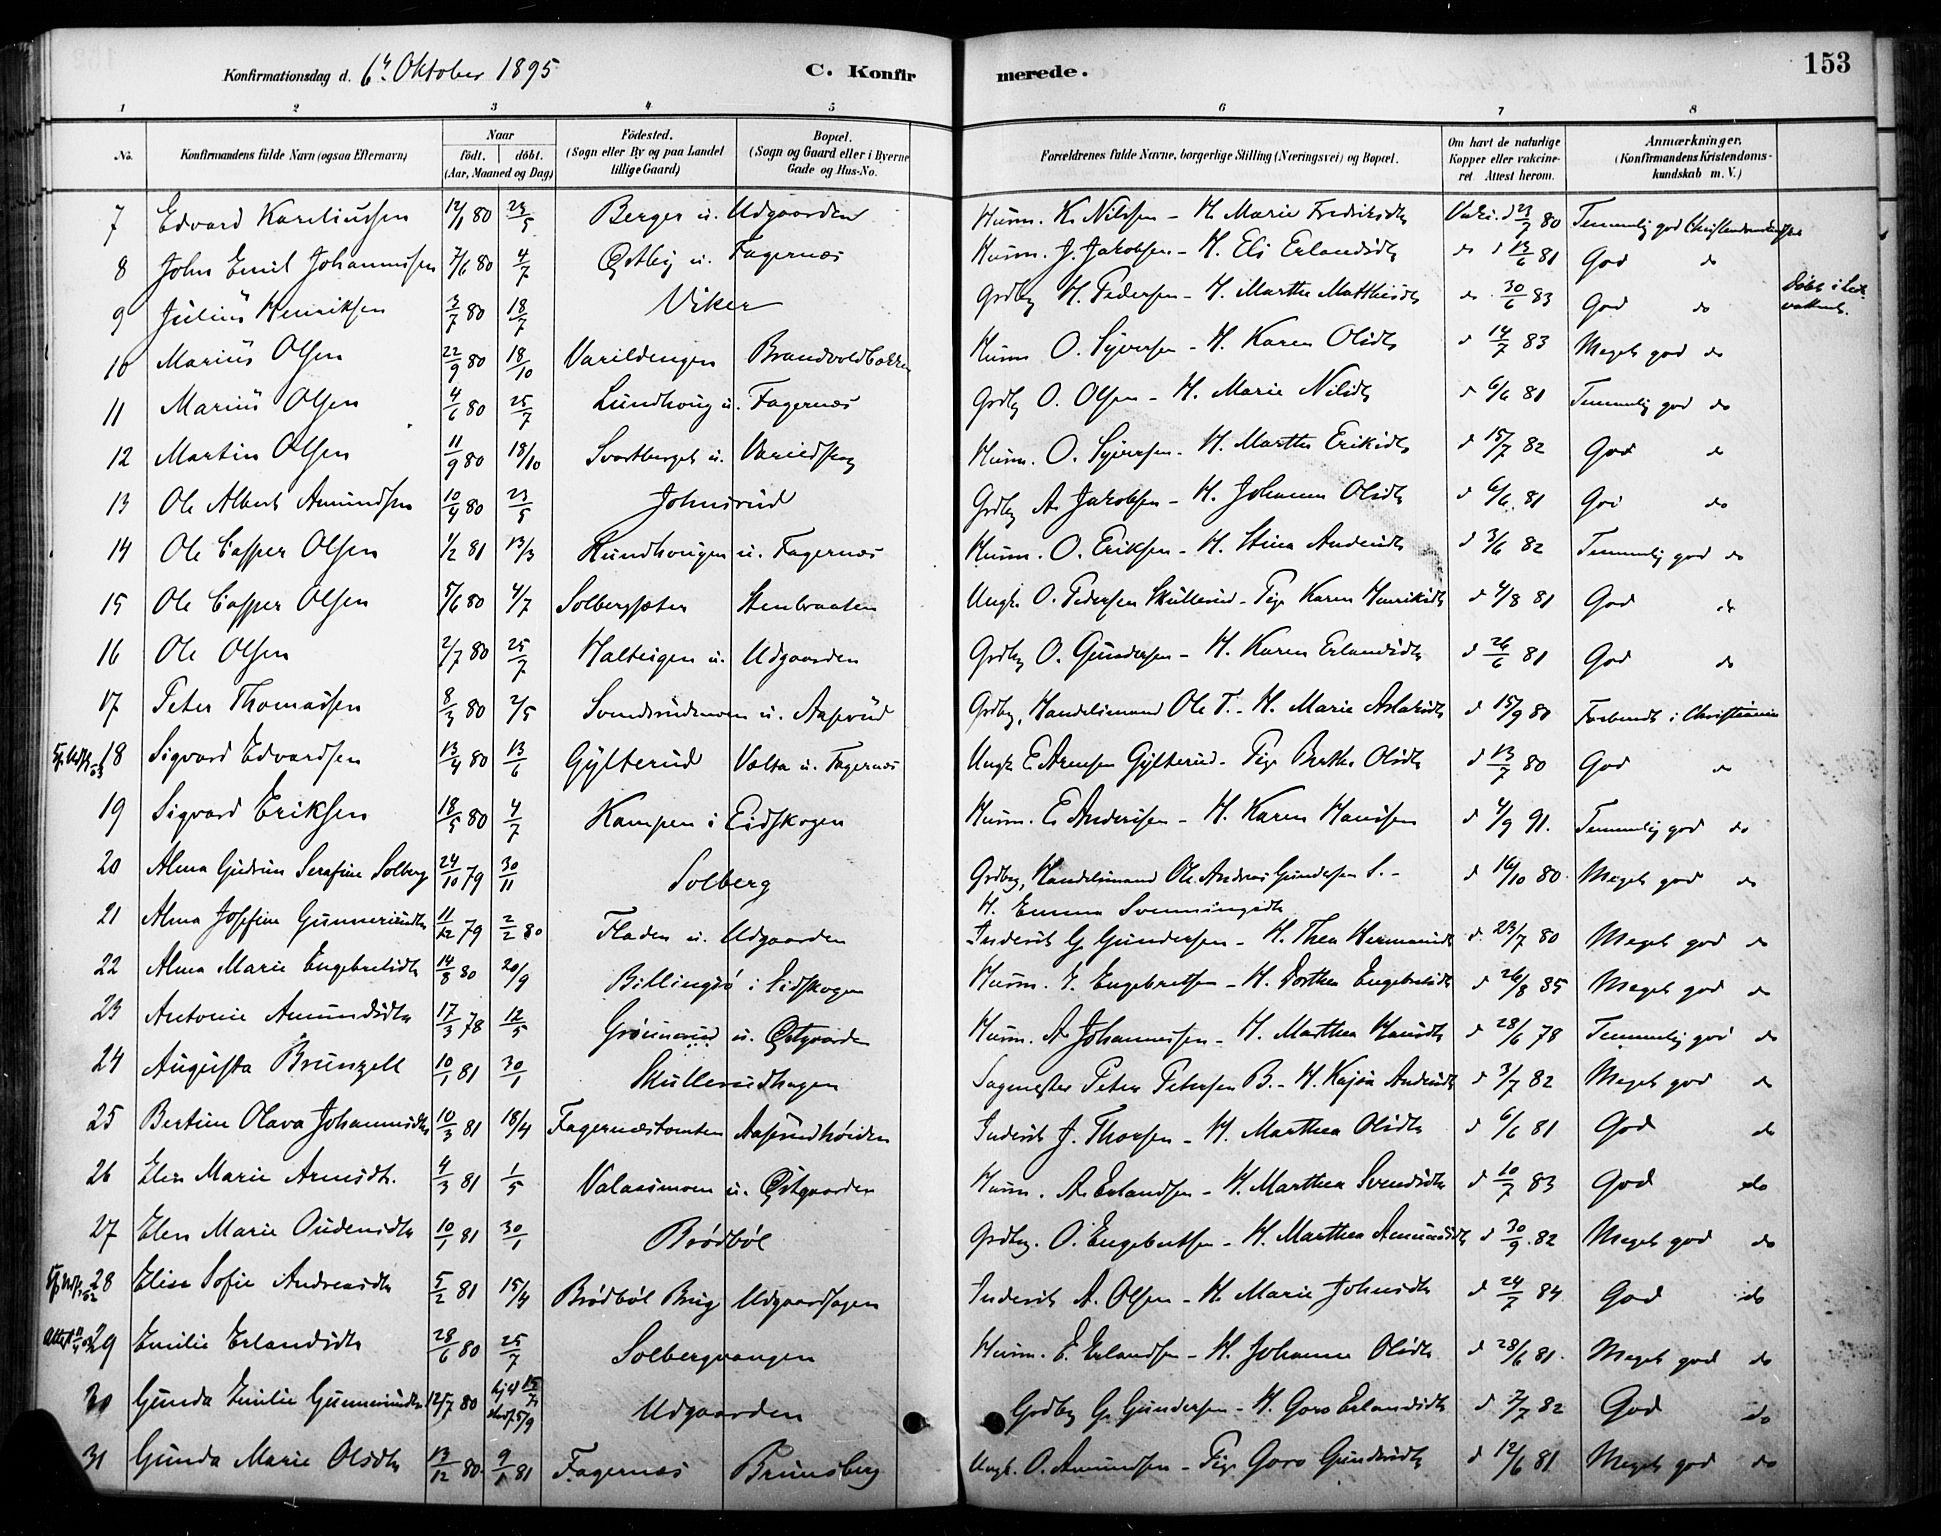 Konfirmationsdag d. 6te Oktober 1895 C. Konfirmerede. 153
1 2 3 4 5 6 7 8
No. Konfirmandens fulde Navn (ogsaa Efternavn) Naar födt. döbt. (Aar, Maaned og Dag) Födested. (Sogn eller By og paa Landet tillige Gaard) Bopæl. (Sogn og Gaard eller i Byerne Gade og Hus-No. Forældrenes fulde Navne, borgerlige Stilling (Næringsvei) og Bopæl. Om havt de naturlige Kopper eller vakcineret Attest herom. Anmærkninger, (Konfirmandens Kristendomskundskab m. V.)
7 Edvard Kareliussen 12/1 80 23/5 Berger u. Udgaarden Husm. K. Nilssen - H. Marie Fredriksdtr Vakc. d 23/7 80 Temmelig god Christendomskundsk.
8 John Emil Johannessen 7/6 80 4/7 Østby u. Fagernæs Husm. J. Jakobsen - H. Eli Erlandsdtr do d 13/6 81 God do
9 Julius Henriksen 3/7 80 18/7 Viker Grdbr H. Pedersen - H. Marthe Matthisdtr do 30/6 83 God do Döbt i
10 Marius Olsen 22/9 80 18/10 Varildengen Brandvoldbakken Husm O. Syversen - H. Karen Olsdtr d 14/7 83 Meget god do
11 Marius Olsen 4/6 80 25/7 Lundhoug u. Fagernæs Grdbr O. Olsen - H. Marie Nilsdtr d 6/6 81 Temmelig god do
12 Martin Olsen 11/9 80 18/10 Svartberget u. Varildskog Husm. O. Syversen - H. Marthe Eriksdtr d 15/7 82 God do
13 Ole Albert Amundsen 10/4 80 23/5 Johnsrud Grdbr A. Jakobsen - H. Johanne Olsdtr d 6/6 81 God do
14 Ole Casper Olsen 1/2 81 13/3 Rundhougen u. Fagernæs Husm. O. Eriksen - H. Stina Andersdtr d 3/6 82 Temmelig god do
15 Ole Casper Olsen 5/6 80 4/7 Solbergsæter Stenbraaten Ungk. O. Pedersen Skullerud - Pige Karen Henriksdtr d 4/8 81 God do
16 Ole Olsen 2/7 80 25/7 u. Udgaarden Grdbr O. Gundersen - H. Karen Erlandsdtr d 26/6 81 God do
17 Peter Thomassen 8/3 80 2/5 Svendsrudmoen u. Aaserud Grdbr, Handelsmand Ole T. - H. Marie Aslaksdtr d 15/9 80 Forberedt i Christiania
18 Sigvard Edvardsen 13/4 80 13/6 Gylterud Valta u. Fagernæs Ungk. E. Arnesen Gylterud - Pige Berthe Olsdtr d 13/7 80 God do
19 Sigvard Eriksen 18/5 80 4/7 Kampen i Eidskogen Husm. E. Andersen - H. Karen Hansen d 4/9 91. Temmelig god do
20 Alma Gudrun Serafine Solberg 24/10 79 30/11 Solberg Grdbr, Handelsmand Ole Andreas Gundersen S. - d 16/10 80 Meget god do
H. Emma Svenningsdtr
21 Alma Josefine Gunneriusdtr 11/12 79 2/2 80 Fladen u. Udgaarden Inderst G. Gundersen - H. Thea Hermansdtr d. 23/7 80 Meget god do
22 Alma Marie Engebretsdtr 14/8 80 20/9 Billingsö i Eidskogen Husm. E. Engebretsen - H. Dorthea Engebretsdtr d 26/8 85 Meget god do
23 Antonie Amundsdtr 17/3 78 12/5 Grønnerud u. Østgaarden Husm. A Johannessen - H. Marthea Hansdtr d 28/6 78 Temmelig god do
24 Augusta Brunzell 10/1 81 30/1 Skullerudhagen Sagmester Peter Petersen B. - H. Kajsa Andersdtr d 3/7 82 Meget god do
25 Bertine Olava Johannesdtr 10/3 81 18/4 Fagernæstomten Aaserudhöiden Inderst J. Thorsen - H. Marthea Olsdtr d 6/6 81 God do
26 Elen Marie Arnesdtr. 4/3 81 1/5 Valaasmoen u. Østgaarden Husm. A. Erlandsen - H. Marthea Svendsdtr d 10/7 83 God do
27 Elen Marie Oudensdtr 10/1 81 30/1 Brödböl Grdbr. O. Engebretsen - H. Marthea Amundsdtr d 30/9 82 Meget god do
28 Elise Sofie Andreasdtr 5/2 81 15/4 Brödböl Brug Udgaardsagen Inderst A. Olsen - H. Marie Johnsdtr d 24/7 84 God do
29 Emilie Erlandsdtr 28/6 80 25/7 Solbergvangen Husm. E. Erlandsen - H. Johanne Olsdtr d 28/6 81. Meget god do
30 Gunda Emilie Gunneriusdtr 12/7 80 hj d 15/7 5/9 Udgaarden Grdbr G. Gundersen - H. Goro Erlandsdtr d 2/7 82 God do
31 Gunda Marie Olsdtr 13/12 80 9/1 81 Fagernæs Brunsberg Ungk. O. Amundsen - Pige Goro Gundersdtr d 12/6 81 Meget god do